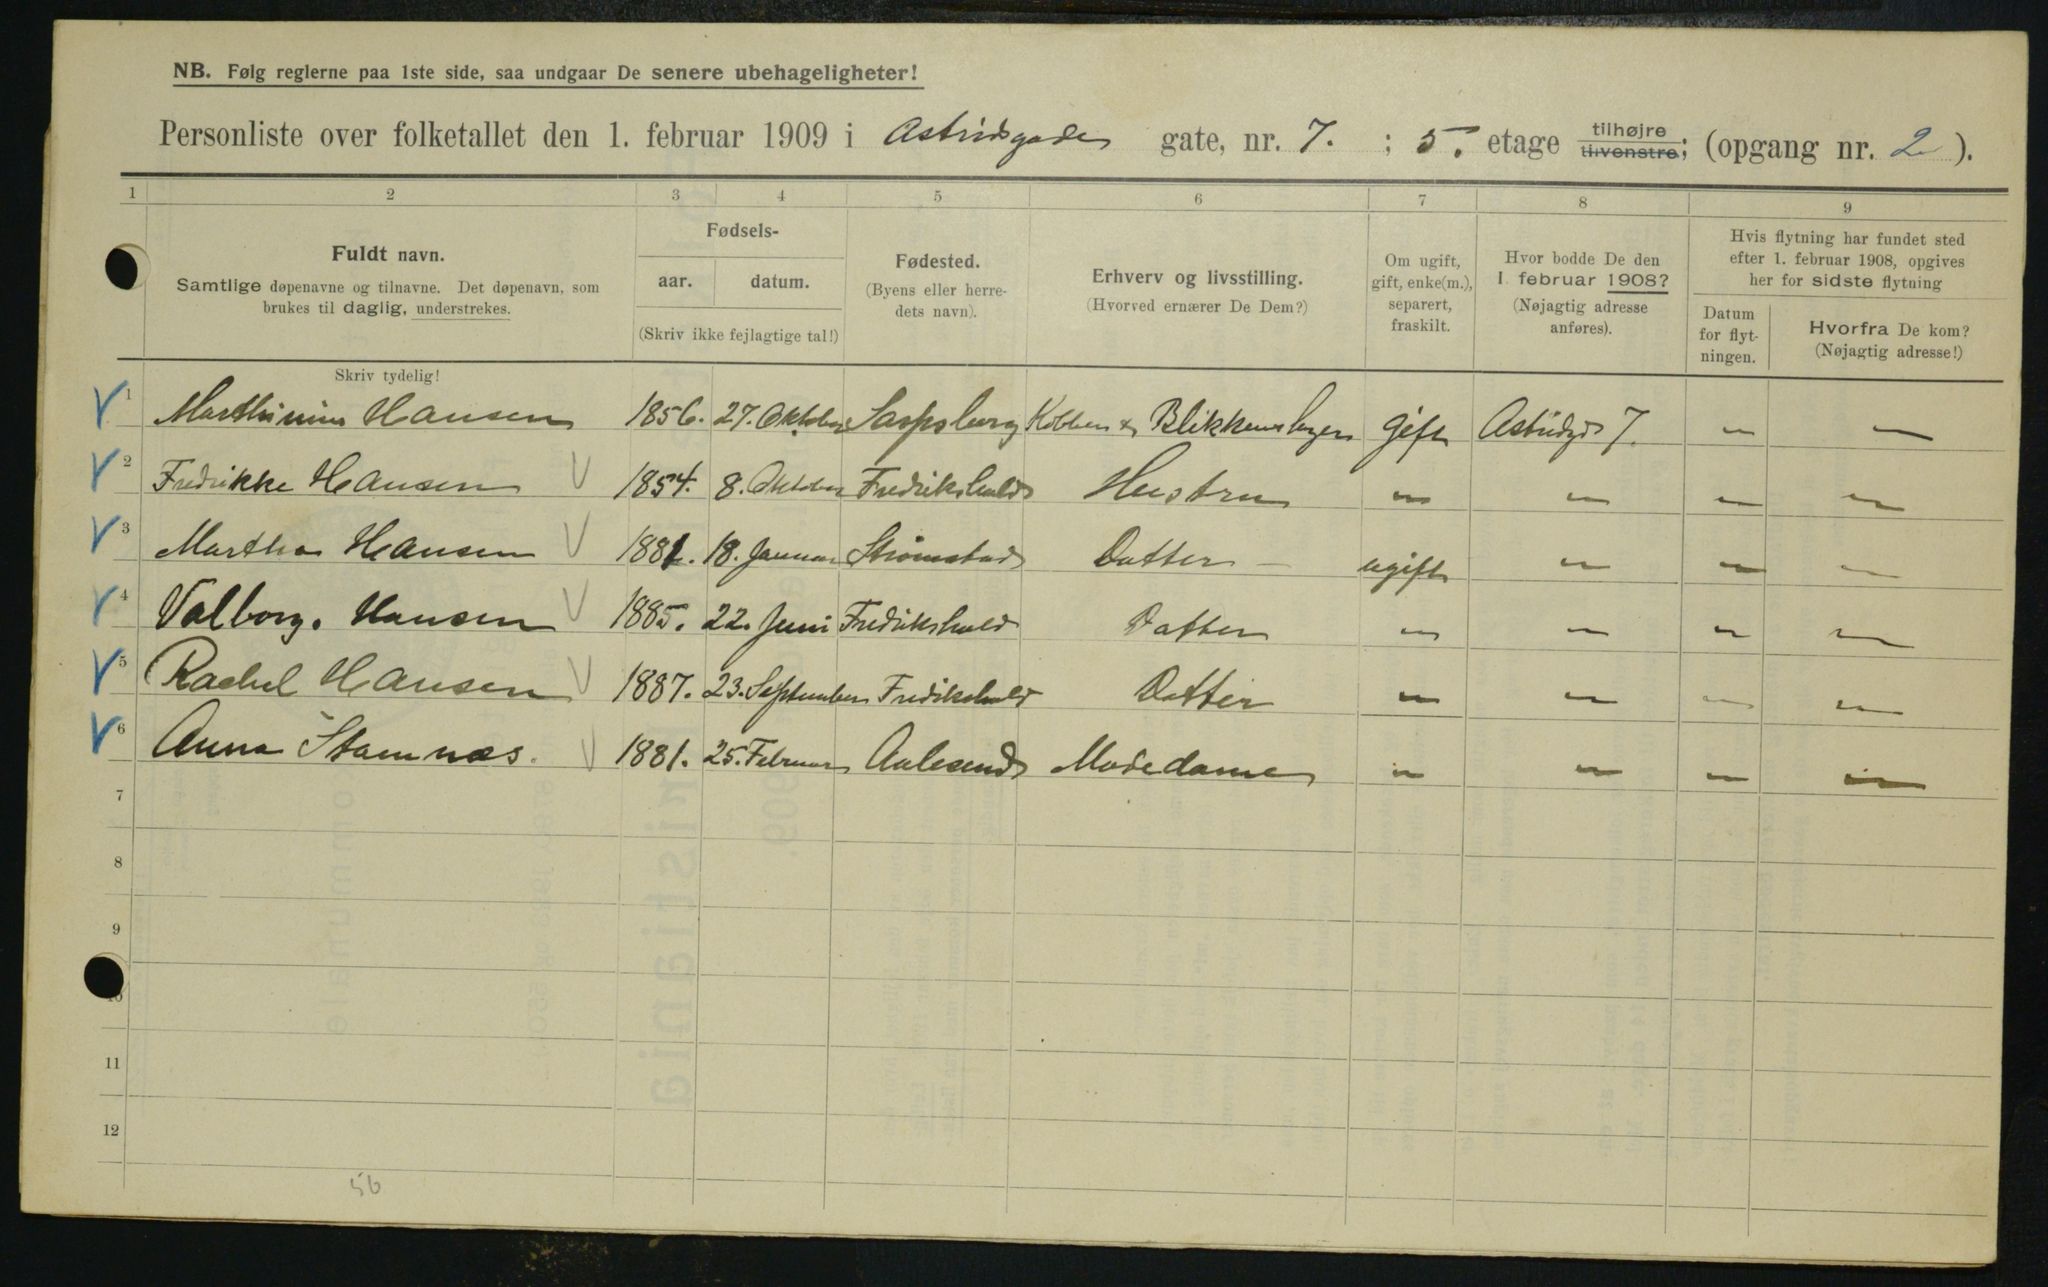 NB. Følg reglerne paa 1ste side, saa undgaar De senere ubehageligheter!
Personliste over folketallet den 1. februar 1909 i Astridsgade gate, nr. 7. ; 5. etage tilhøjre tilvenstre; (opgang nr. 2 ).
1 2 3 4 5 6 7 8 9
Fuldt navn.
Samtlige døpenavne og tilnavne. Det døpenavn, som
brukes til daglig, understrekes.
Fødsels-
aar. datum.
(Skriv ikke fejlagtige tal!)
Fødested.
(Byens eller herre-
dets navn).
Erhverv og livsstilling.
(Hvorved ernærer De Dem?)
Om ugift,
gift, enke(m.),
separert,
fraskilt.
Hvor bodde De den
1. februar 1908?
(Nøjagtig adresse
anføres).
Hvis flytning har fundet sted
efter 1. februar 1908, opgives
her for sidste flytning
Datum
for flyt-
ningen.
Hvorfra De kom?
(Nøjagtig adresse!)
Skriv tydelig!
1 Marthinius Hansen 1856. 27. Oktober Sarpsborg Kobber & Blikkenslager gift Astridsgd 7. " "
2 Fredrikke Hansen 1854. 8. Oktober Fredrikshald Hustru " " " "
3 Martha Hansen 1881. 18. Januar Strømstad Datter - ugift " " "
4 Valborg. Hansen 1885. 22. Juni Fredrikshald Datter " " " "
5 Rachel Hansen 1887. 23. September Fredrikshald Datter " " " "
6 Anna Stamnæs. 1881. 25. Februar Aalesund Modedame " " " "
7
8
9
10
11
12
56